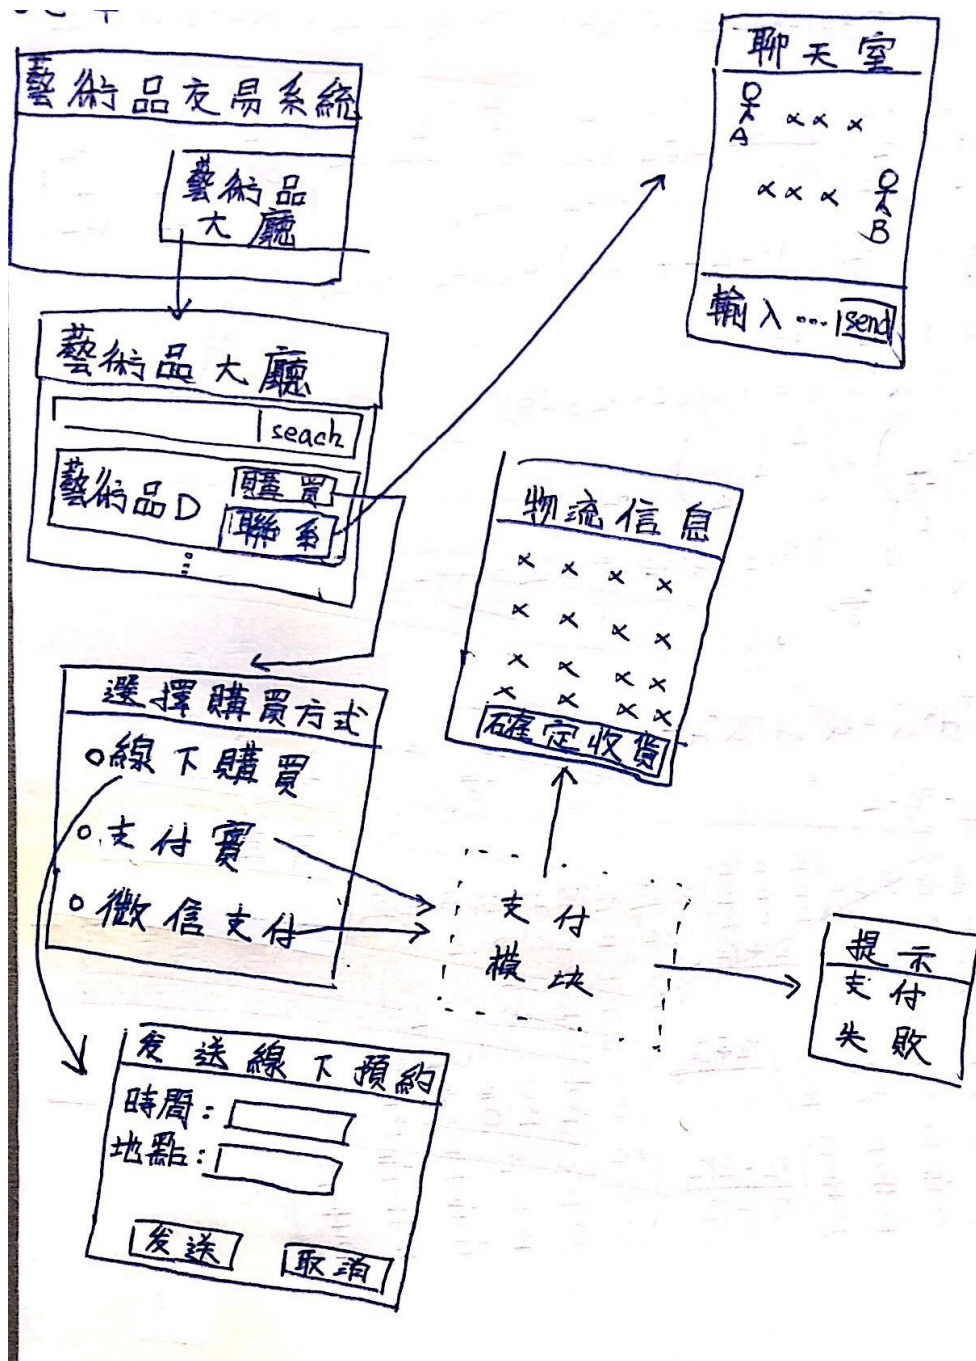 藝術品交易系統
藝術品
大廳
藝術品大廳
seach
藝術品D
購買
聯系
聊天室
A
×××
×××
B
輸入…
send
選擇購買方式
線下購買
支付寶
微信支付
物流信息
××××
××××
××××
××××
確定收貨
支付
模块
提示
支付
失敗
发送線下預約
時間:
地點:
发送
取消